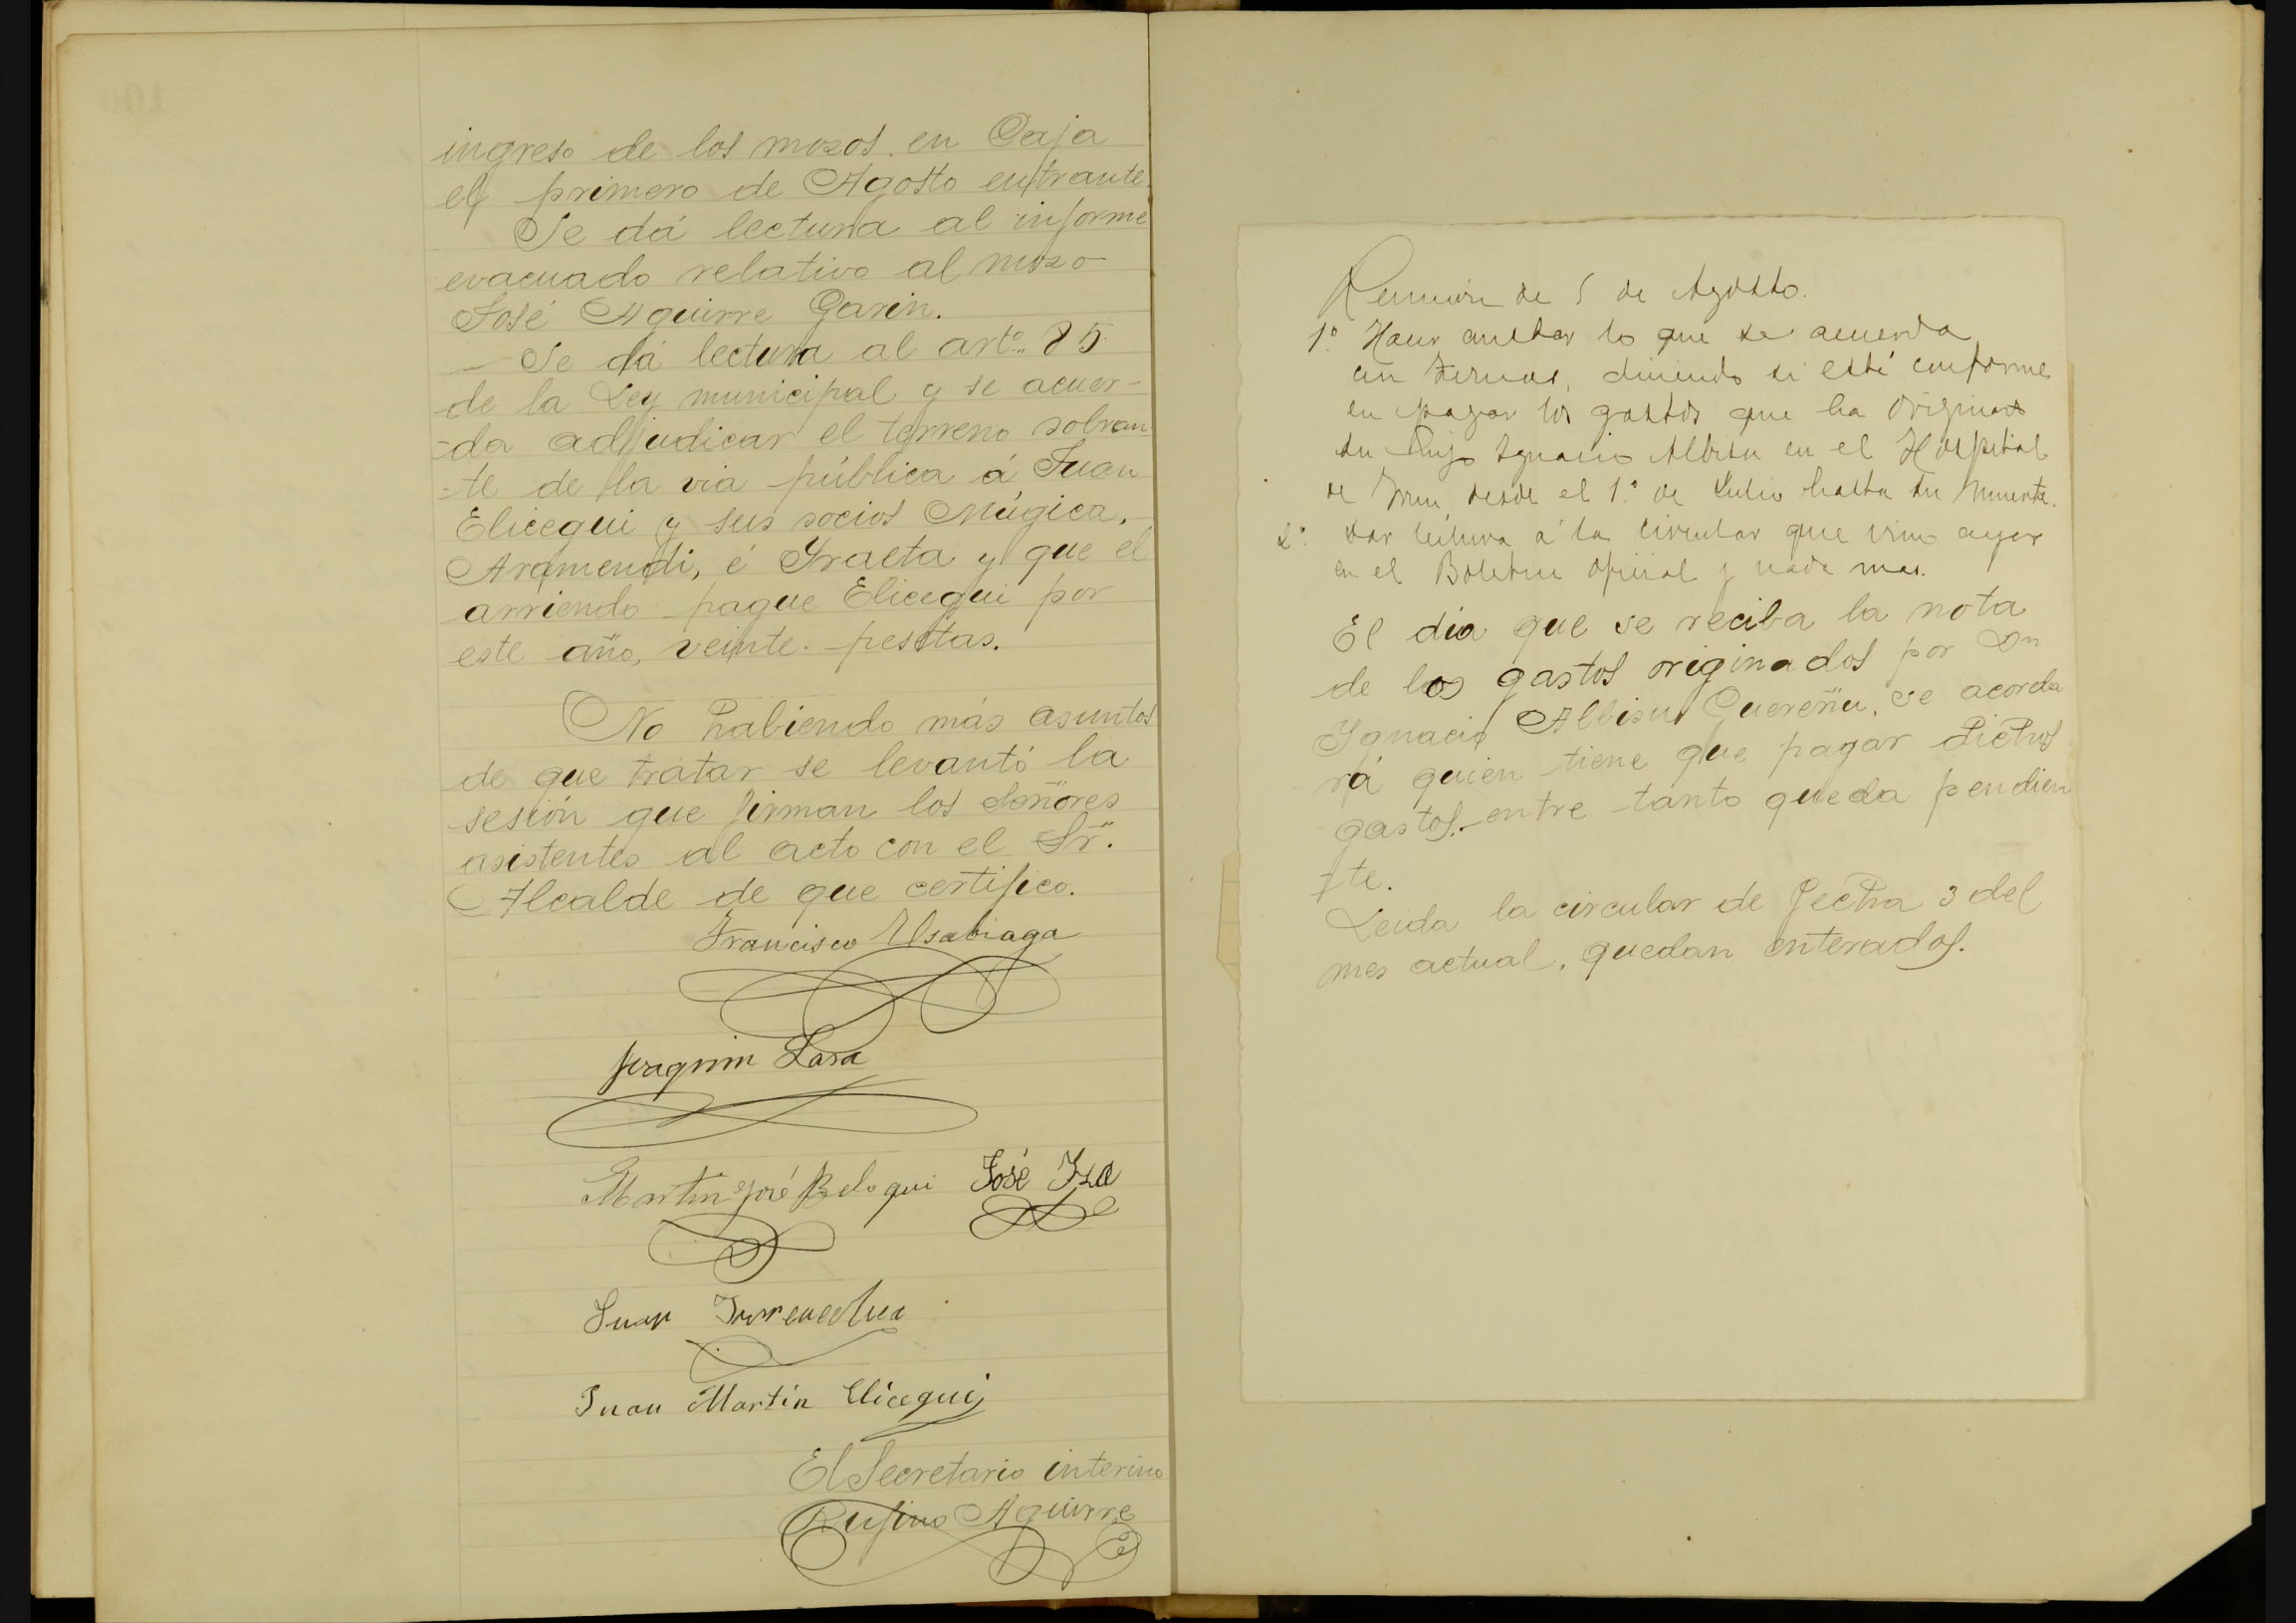 ingreso de los mozos en Caja
el primero de Agosto entrante.
Se dá lectura al informe
evacuado relativo al mozo
José Aguirre Garin.
— Se dá lectura al artº. 85
de la Ley municipal y se acuer-
-da adjudicar el terreno sobran-
-te de la via pública á Juan
Elicegui y sus socios Múgica,
Aramendi, é Iraeta y que el
arriendo pague Elicegui por
este año, veinte pesetas.
No habiendo más asuntos
de que tratar se levantó la
sesión que firman los Señores
asistentes al acto con el Sr.
Alcalde de que certifico.
Francisco Usabiaga
Joaquin Lasa
Martin José Beloqui José Iza
Juan Irurenechea
Juan Martin Elicegui
El Secretario interino
Rufino Aguirre
Reunión de 5 de Agosto.
1º. Hacer lo que se acuerda
diciendo si está conforme
en pagar los gastos que ha originado
su hijo Ignacio Albisu en el Hospital
de Irun desde el 1º. de Julio hasta su muerte.
2º. Dar lectura á la circular que vino ayer
en el Boletin oficial y nada mas.
El dia que se reciba la nota
de los gastos originados por Dn
Ignacio Albisu Guereñu, se acorda
rá quien tiene que pagar dichos
gastos. entre tanto queda pendien
-te.
Leida la circular de fecha 3 del
mes actual, quedan enterados.